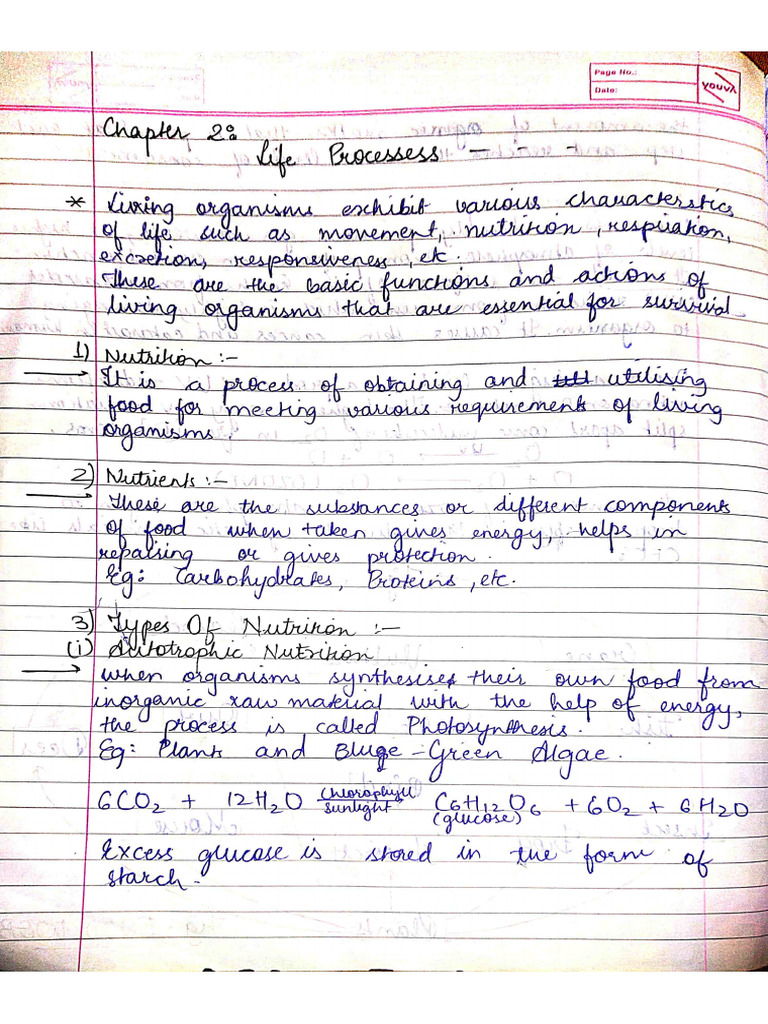 Page No.:
Date:
YOUVA
Chapter 2:
Life Processess - - -
* Living organisms exhibit various characterstics
of life such as movement, nutrition, respiration,
excretion, responsiveness, etc.
These are the basic functions and actions of
living organisms that are essential for survival.
1) Nutrition :-
→ It is a process of obtaining and utilising
food for meeting various requirements of living
organisms.
2) Nutrients :-
→ These are the substances or different components
of food when taken gives energy, helps in
repairing or gives protection.
Eg: Carbohydrates, Proteins, etc.
3) Types Of Nutrition :-
(i) Autotrophic Nutrition
→ when organisms synthesises their own food from
inorganic raw material with the help of energy,
the process is called Photosynthesis.
Eg: Plants and Blue-Green Algae.
6CO2 + 12H2O chlorophyll sunlight C6H12O6 + 6O2 + 6H2O
(glucose)
Excess glucose is stored in the form of
starch.